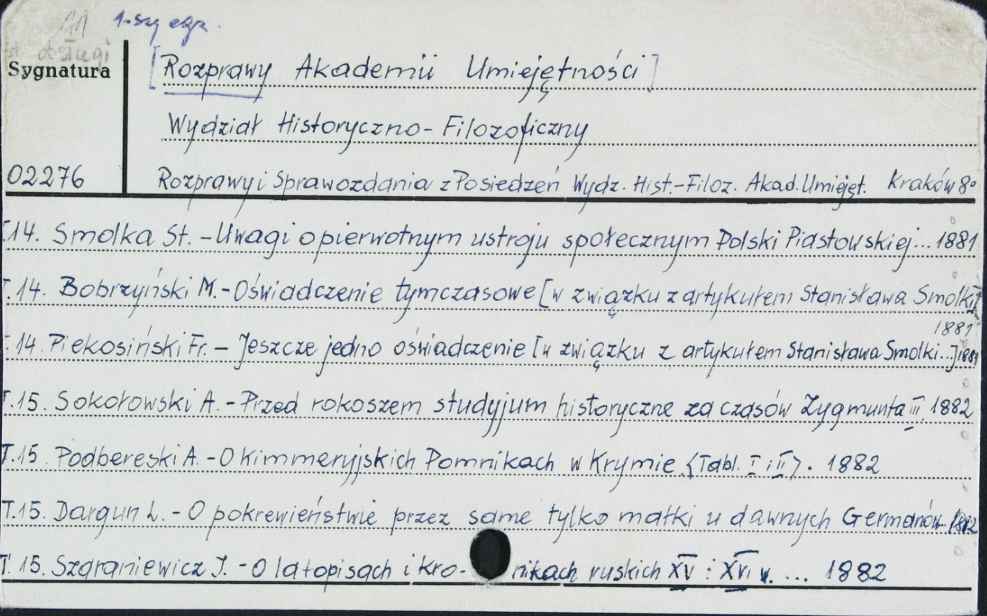 11 1-szy egz.
st. obsługi
Sygnatura [Rozprawy Akademii Umiejętności]
Wydział Historyczno-Filozoficzny
02276 Rozprawy i Sprawozdania z Posiedzeń Wydz. Hist.-Filoz. Akad. Umiejęt. Kraków 8°
T.14. Smolka St. - Uwagi o pierwotnym ustroju społecznym Polski Piastowskiej... 1881
T.14. Bobrzyński M. - Oświadczenie tymczasowe [w związku z artykułem Stanisława Smolki]
1881
T.14. Piekosiński Fr. - Jeszcze jedno oświadczenie [w związku z artykułem Stanisława Smolki...] 1881
T.15. Sokołowski A. - Przed rokoszem studyjum historyczne za czasów Zygmunta III. 1882
T.15. Podbereski A. - O Kimmeryjskich Pomnikach w Krymie (Tabl. I i II). 1882
T.15. Dargun L. - O pokrewieństwie przez same tylko matki u dawnych Germanów 1882
T. 15. Szaraniewicz I. - O latopisach i kro-nikach ruskich XV i XVI w. ... 1882